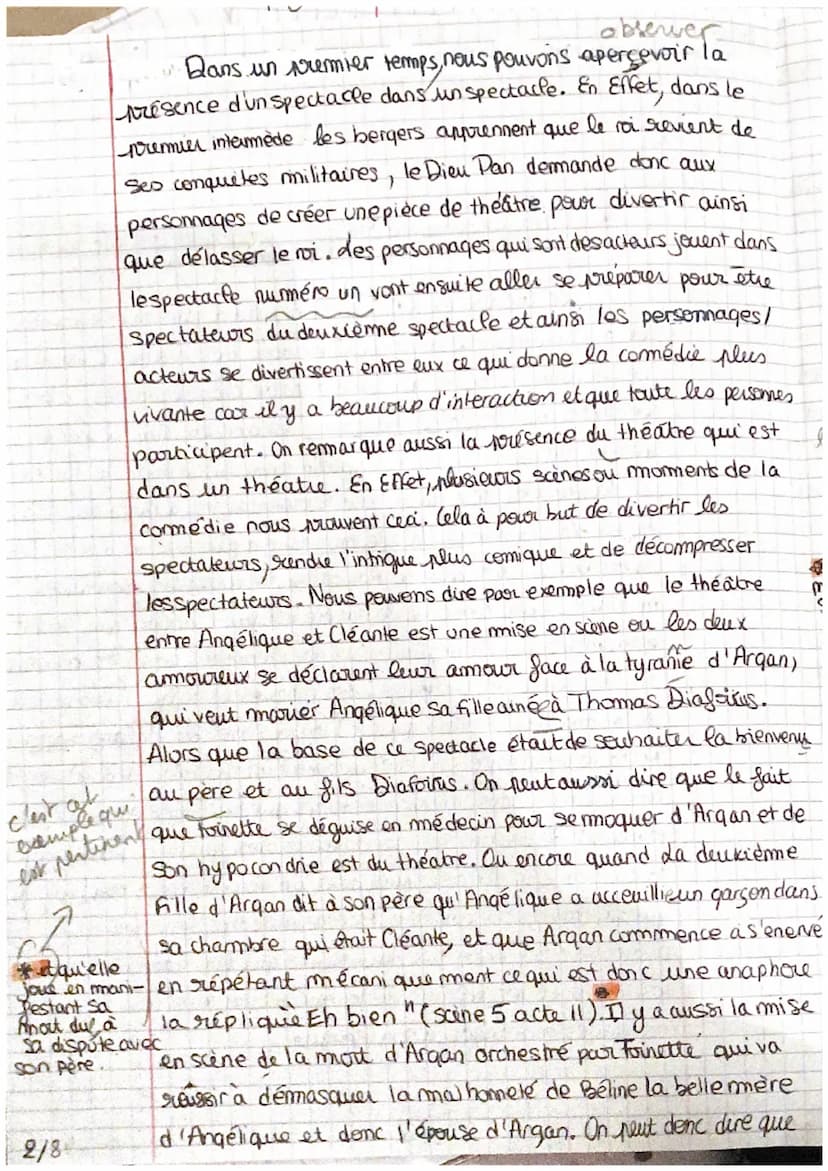 observer
Dans un premier temps, nous pouvons aperçevoir la
présence d'un spectacle dans un spectacle. En Effet, dans le
premier intermède les bergers apprennent que le roi revient de
ses conquêtes militaires, le Dieu Pan demande donc aux
personnages de créer une pièce de théâtre pour divertir ainsi
que délasser le roi. des personnages qui sont des acteurs jouent dans
le spectacle numéro un vont ensuite aller se préparer pour être
spectateurs du deuxième spectacle et ainsi les personnages/
acteurs se divertissent entre eux ce qui donne la comédie plus
vivante car il y a beaucoup d'interaction et que toute les personnes
participent. On remarque aussi la présence du théâtre qui est
dans un théatre. En Effet, plusieurs scènes ou moments de la
comédie nous prouvent ceci. Cela à pour but de divertir les
spectateurs, rendre l'intrigue plus comique et de décompresser
les spectateurs. Nous pouvons dire par exemple que le théâtre
entre Angélique et Cléante est une mise en scène ou les deux
amoureux se déclarent leur amour face à la tyranie d'Argan,
qui veut marier Angélique sa fille ainée à Thomas Diafoirus.
Alors que la base de ce spectacle était de souhaiter la bienvenu
au père et au fils Diafoirus. On peut aussi dire que le fait
c'est cet
exemple qui
est pertinent
que Toinette se déguise en médecin pour se moquer d'Argan et de
son hypocondrie est du théatre. Ou encore quand la deuxième
fille d'Argan dit à son père qu'Angélique a acceuillie un garçon dans
sa chambre qui était Cléante, et que Argan commence à s'enervé
en répétant mécaniquement ce qui est donc une anaphore
la réplique "Eh bien" (scène 5 acte II). Il y a aussi la mise
* et qu'elle
joue en mani-
festant sa
mort du à
sa dispute avec
son père.
en scène de la mort d'Argan orchestré par Toinette qui va
réussir à démasquer la malhonneté de Béline la belle mère
d'Angélique et donc l'épouse d'Argan. On peut donc dire que
2/8